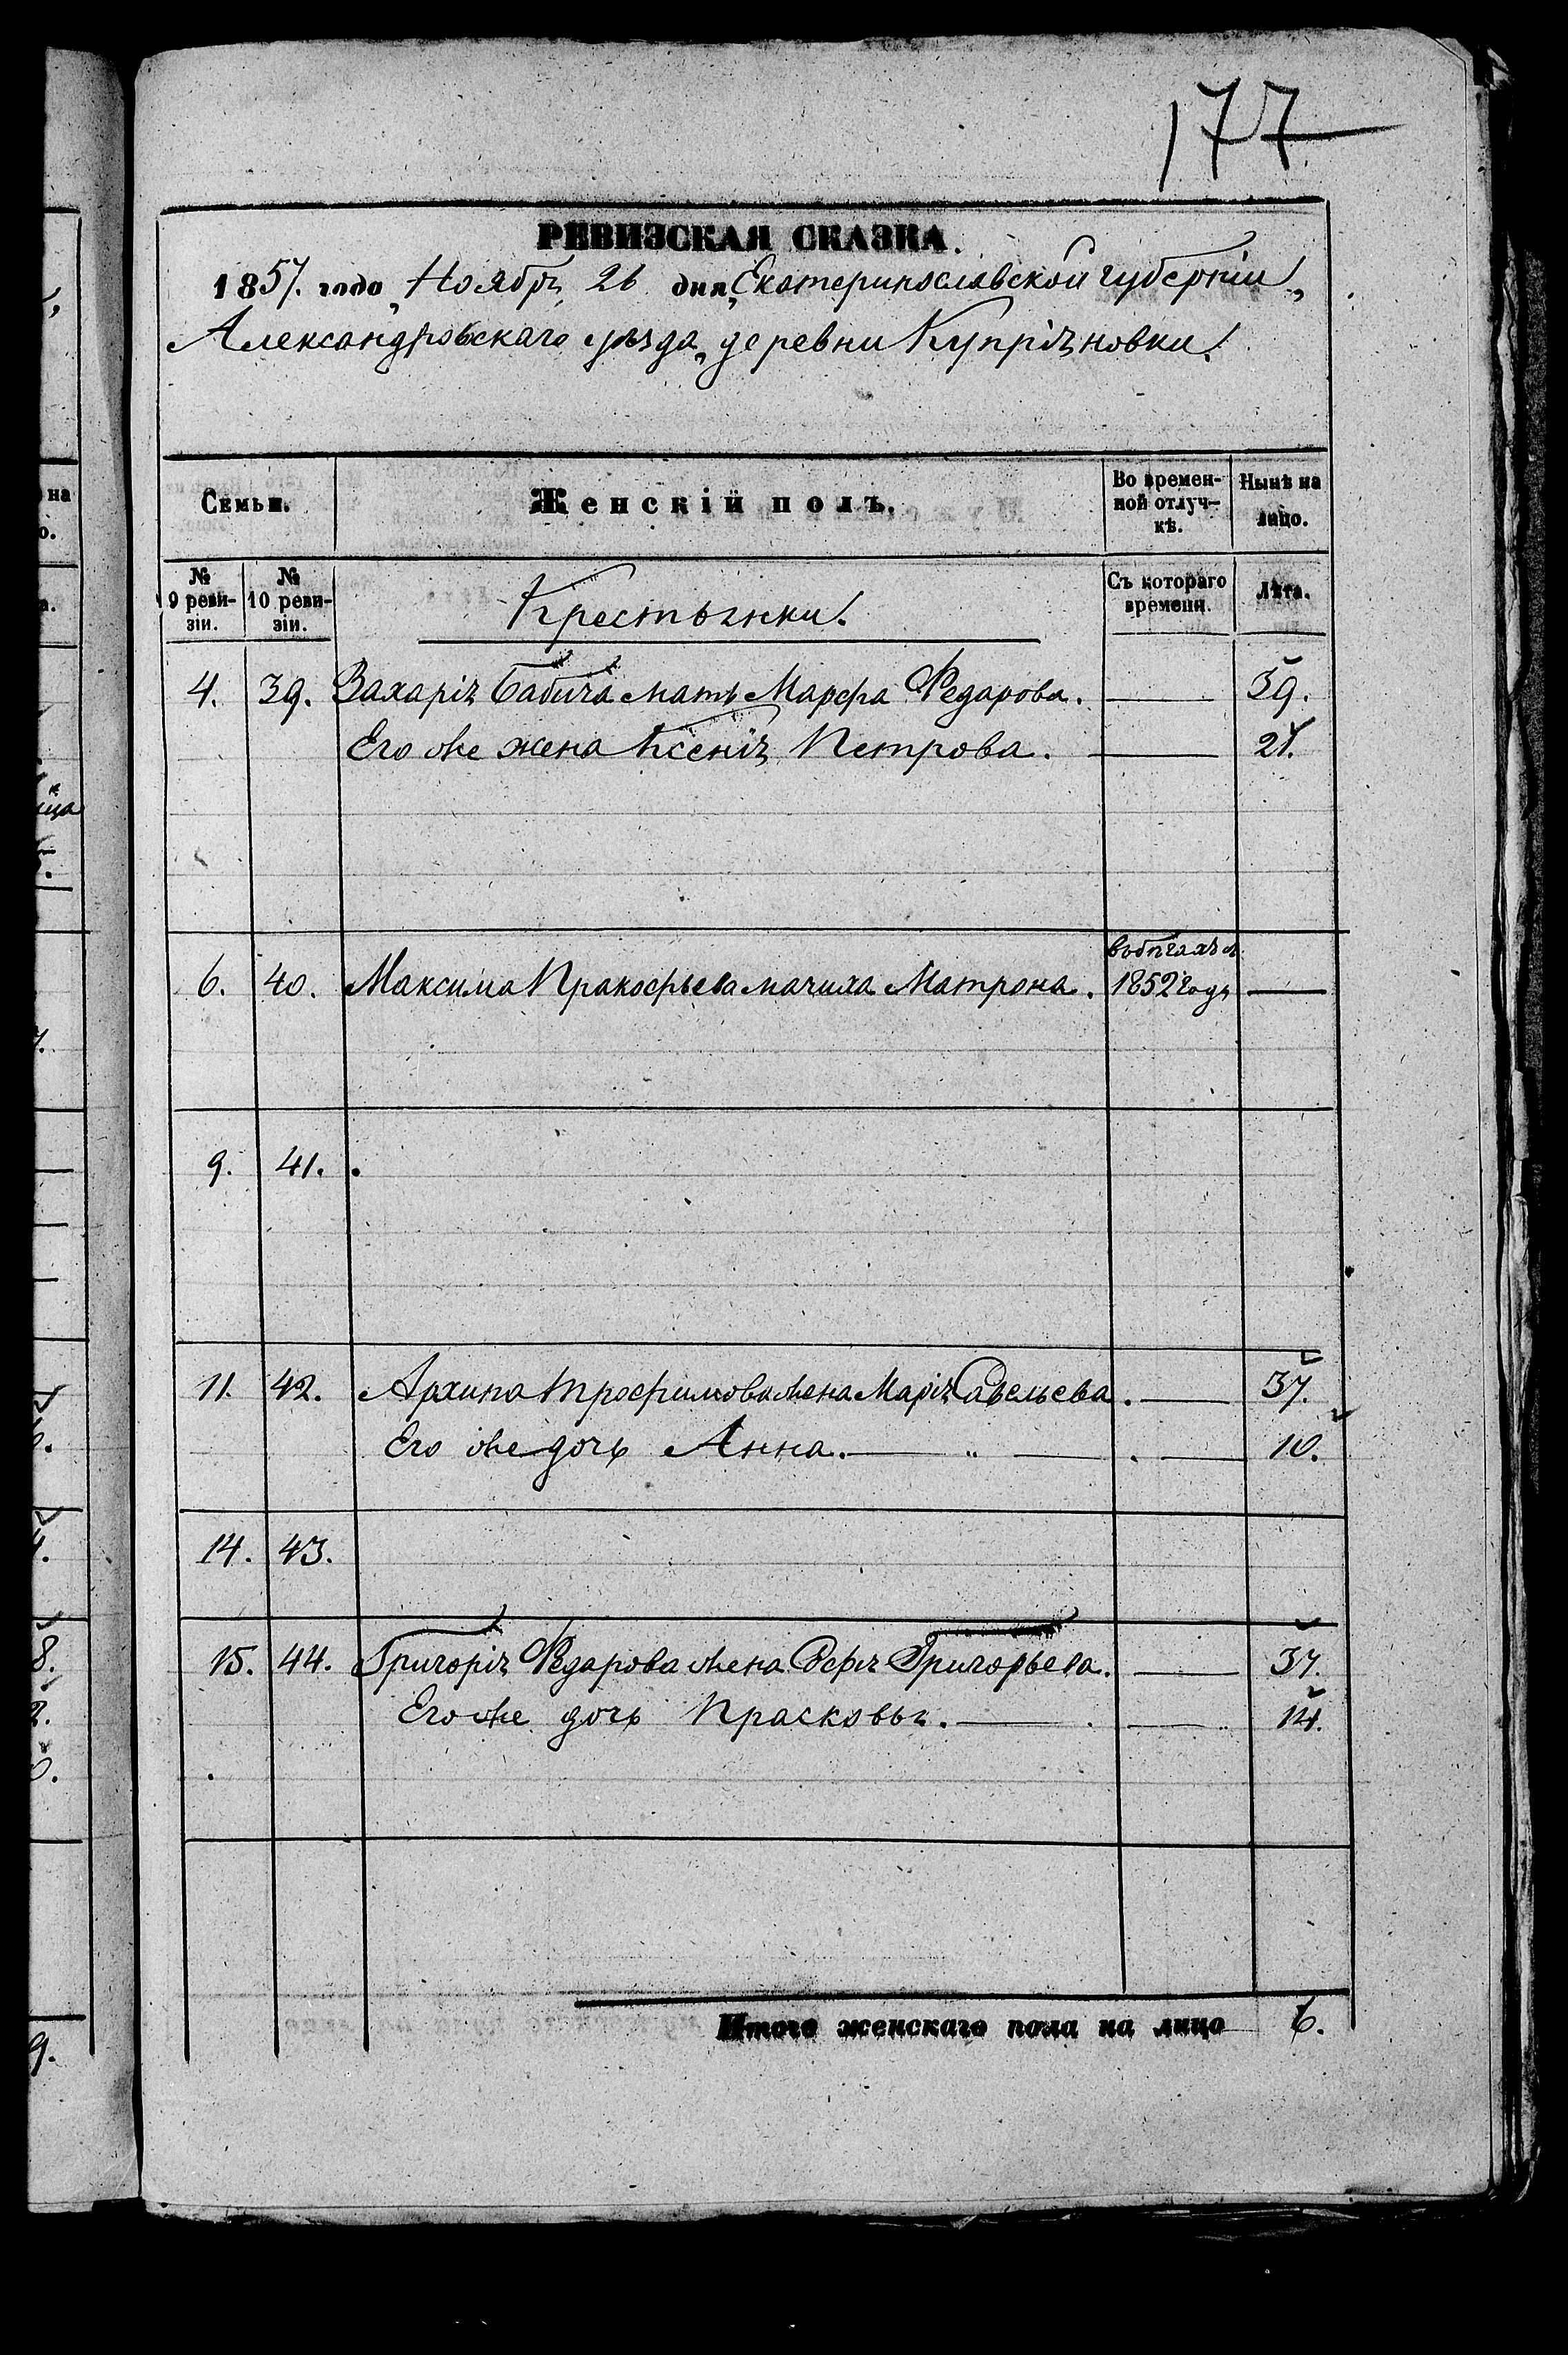 177
РЕВИЗСКАЯ СКАЗКА.
1857. года, Ноября 26 дня, Екатеринославской губерніи,
Александровскаго уѣзда, деревни Купріяновки.
Семьи. Женскій полъ. Во времен-ной отлуч-кѣ. Нынѣ на лицо.
№ 9 реви-зіи. № 10 реви-зіи. Крестьянки. Съ котораго времени. Лѣта.
4. 39. Захарія Бабича мать Марфа Федарова. — 59.
Его же жена Ксенія Петрова. — 21.
6. 40. Максима Пракофьева мачиха Матрона. въ бѣгахъ с 1852 года —
9. 41.
11. 42. Архипа Трофимова жена Марія Савельева. — 37.
Его же дочь Анна. — „ — . — 10.
14. 43.
15. 44. Григорія Федарова жена Софія Григорьева. — 37.
Его же дочь Прасковья. — . — 14.
Итого женскаго пола на лицо 6.
на
о.
а.
ица
8.
2.
9.